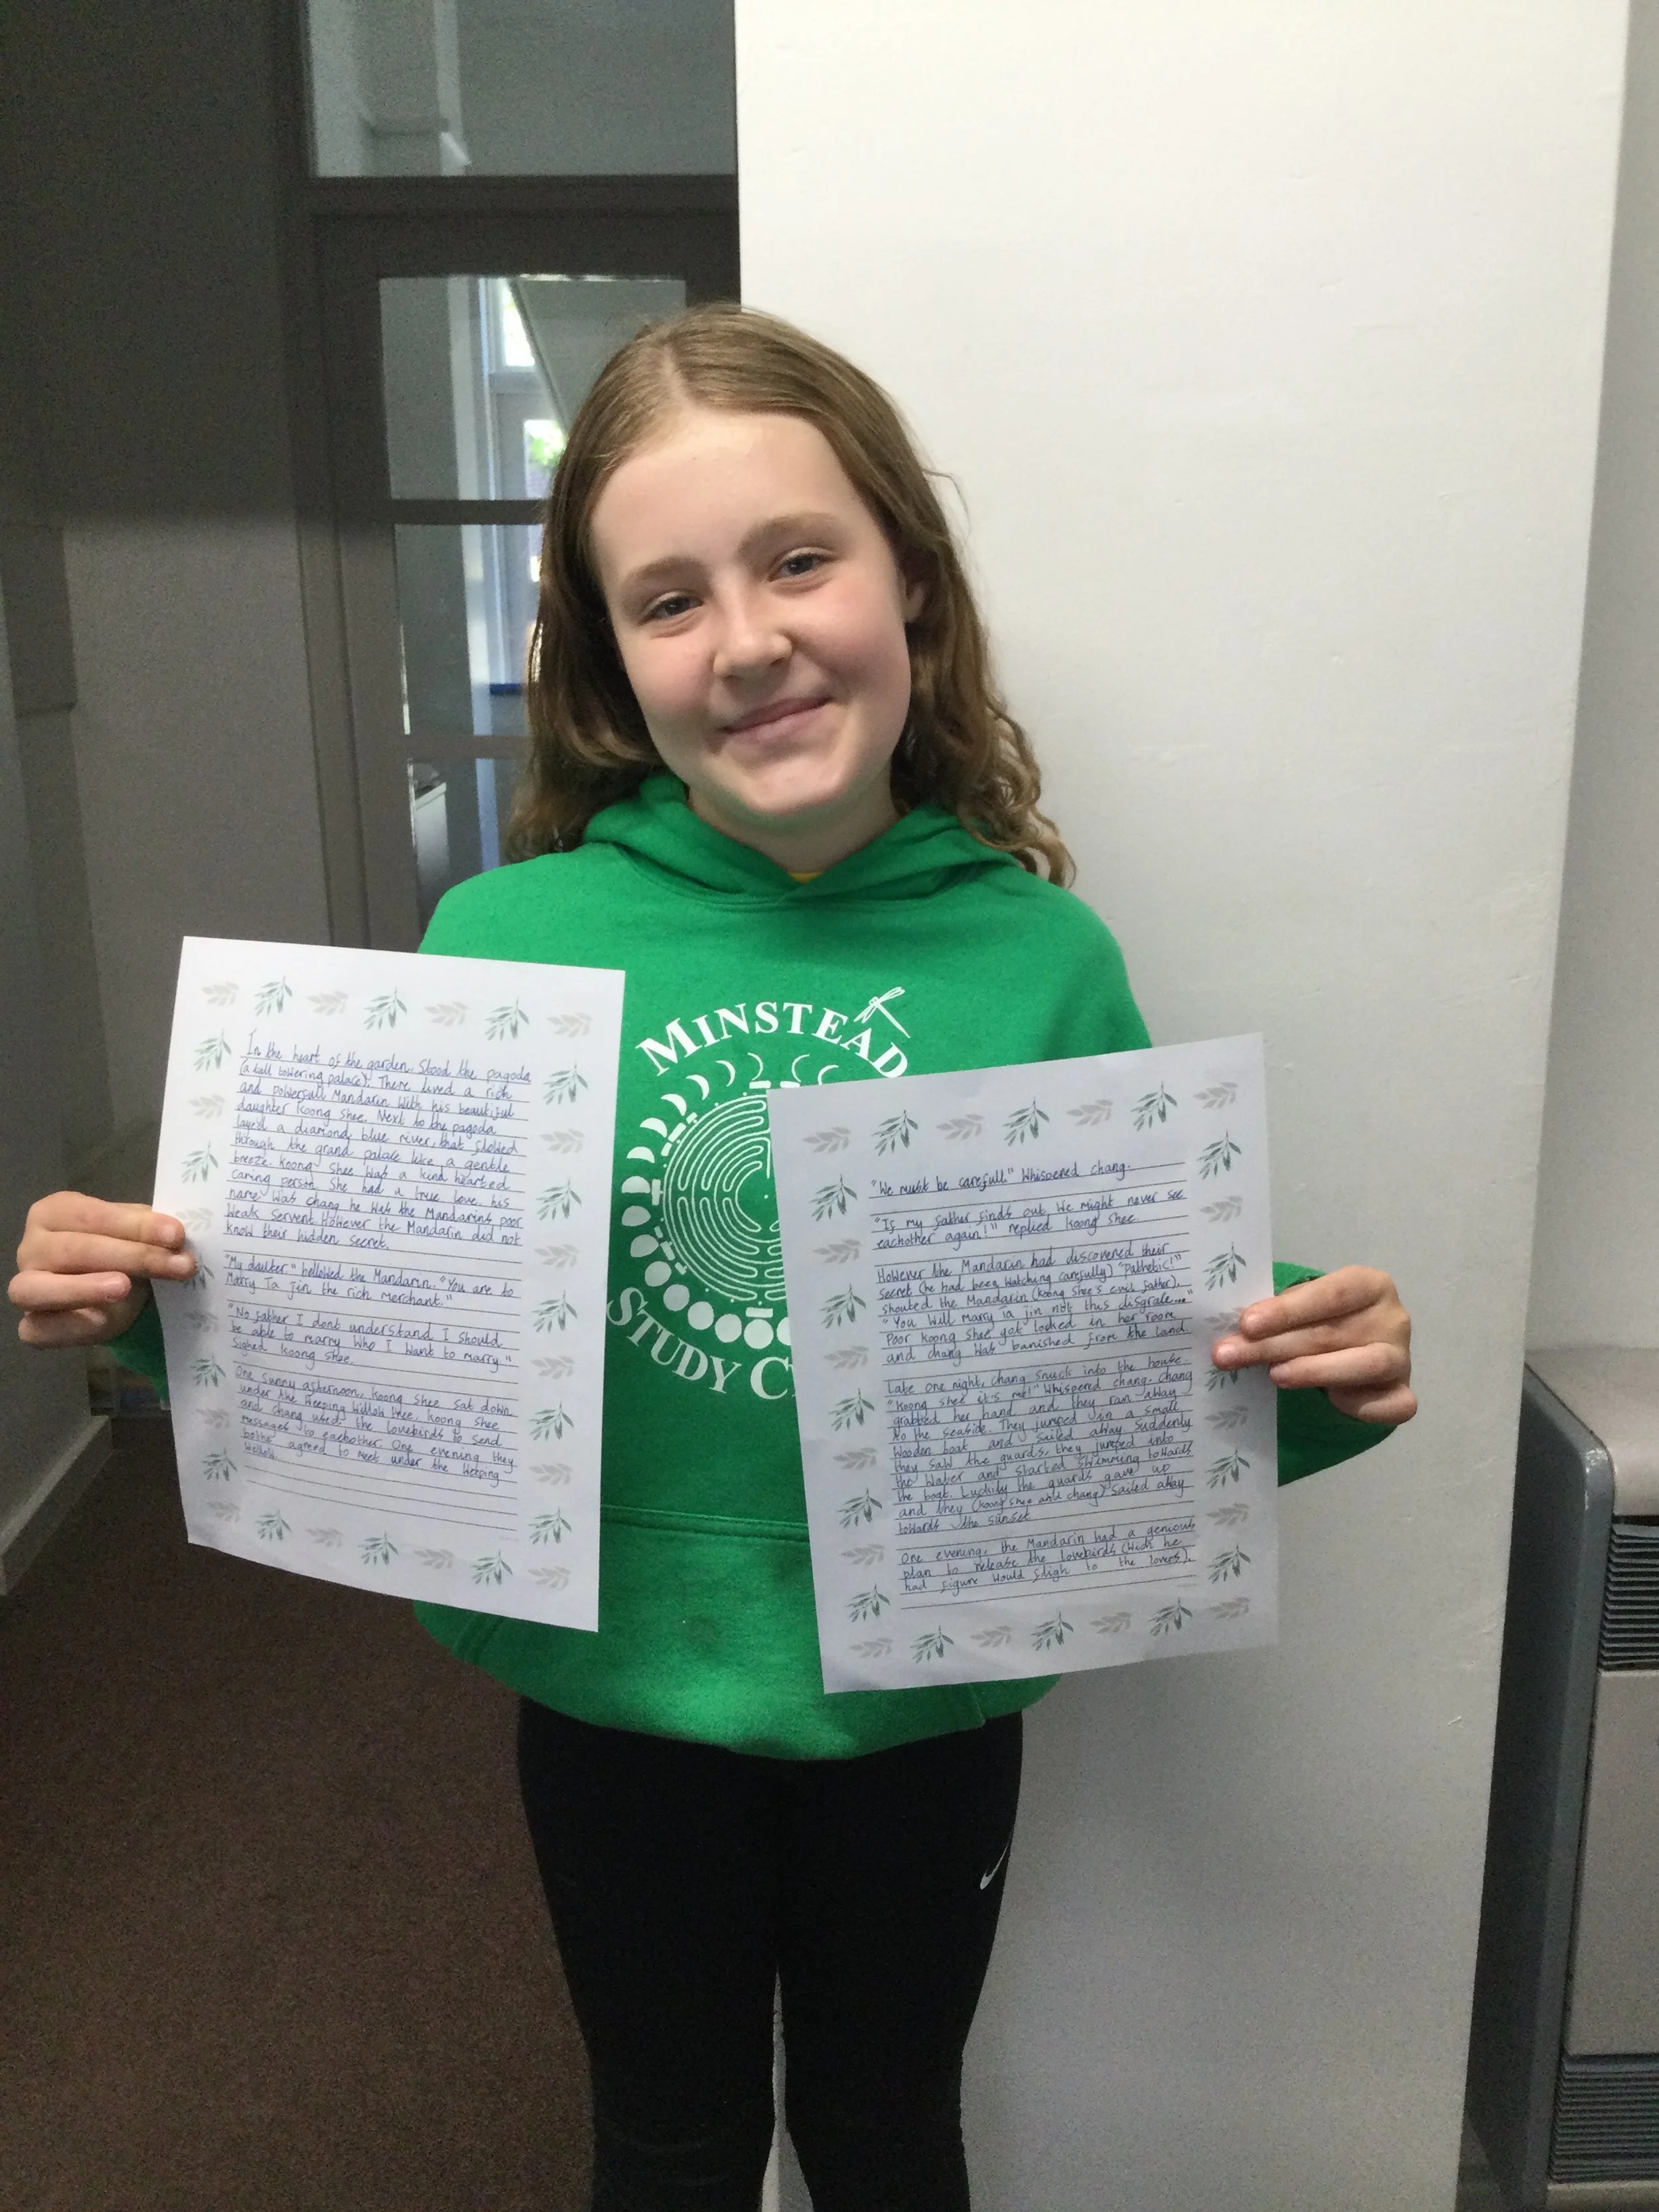 MINSTEAD
STUDY C
In the heart of the garden. Stood the pagoda
(a tall towering palace). There lived a rich
and powerfull Mandarin With his beautiful
daughter Koong shee. Next to the pagoda
laye'd a diamond, blue river, that flowed
through the grand palace like a gentle
breeze. Koong Shee Was a kind hearted
caring person. She had a true love, his
name Was chang he Was the Mandarins poor
Weak servent. However the Mandarin did not
know their hidden secret.
"My daulter" bellowed the Mandarin. "You are to
Marry Ta jin the rich Merchant."
"No father I dont understand I should
be able to marry Who I Want to marry"
sighed koong shee.
One sunny afternoon, koong shee sat down
under the Weeping Willow tree. koong shee
and chang used the lovebirds to send
Messages to eachother. One evening they
bothe agreed to Meet under the Weeping
Willow.
"We must be carefull." Whispered chang.
"If my father finds out We might never see
eachother again!" replied koong shee.
However the Mandarin had discovered their
secret (he had been Watching carefully) "Pathetic!"
shouted the Mandarin (koong shee's evil father).
"You Will Marry ta jin not this disgrale..."
Poor koong shee got locked in her room
and chang Was banished from the land.
Late one night, chang snuck into the house.
"Koong shee it's me!" Whispered chang. Chang
grabbed her hand and they ran away
to the seaside. They jumped in a small
Wooden boat and sailed away. Suddenly
they saw the guards, they jumped into
the Water and started swimming towards
the boat. Luckily the guards gave up
and they (koong shee and chang) sailed away
towards the sunset
One evening, the Mandarin had a genious
plan to release the lovebirds (Wich he
had figure Would fligh to the lovers).